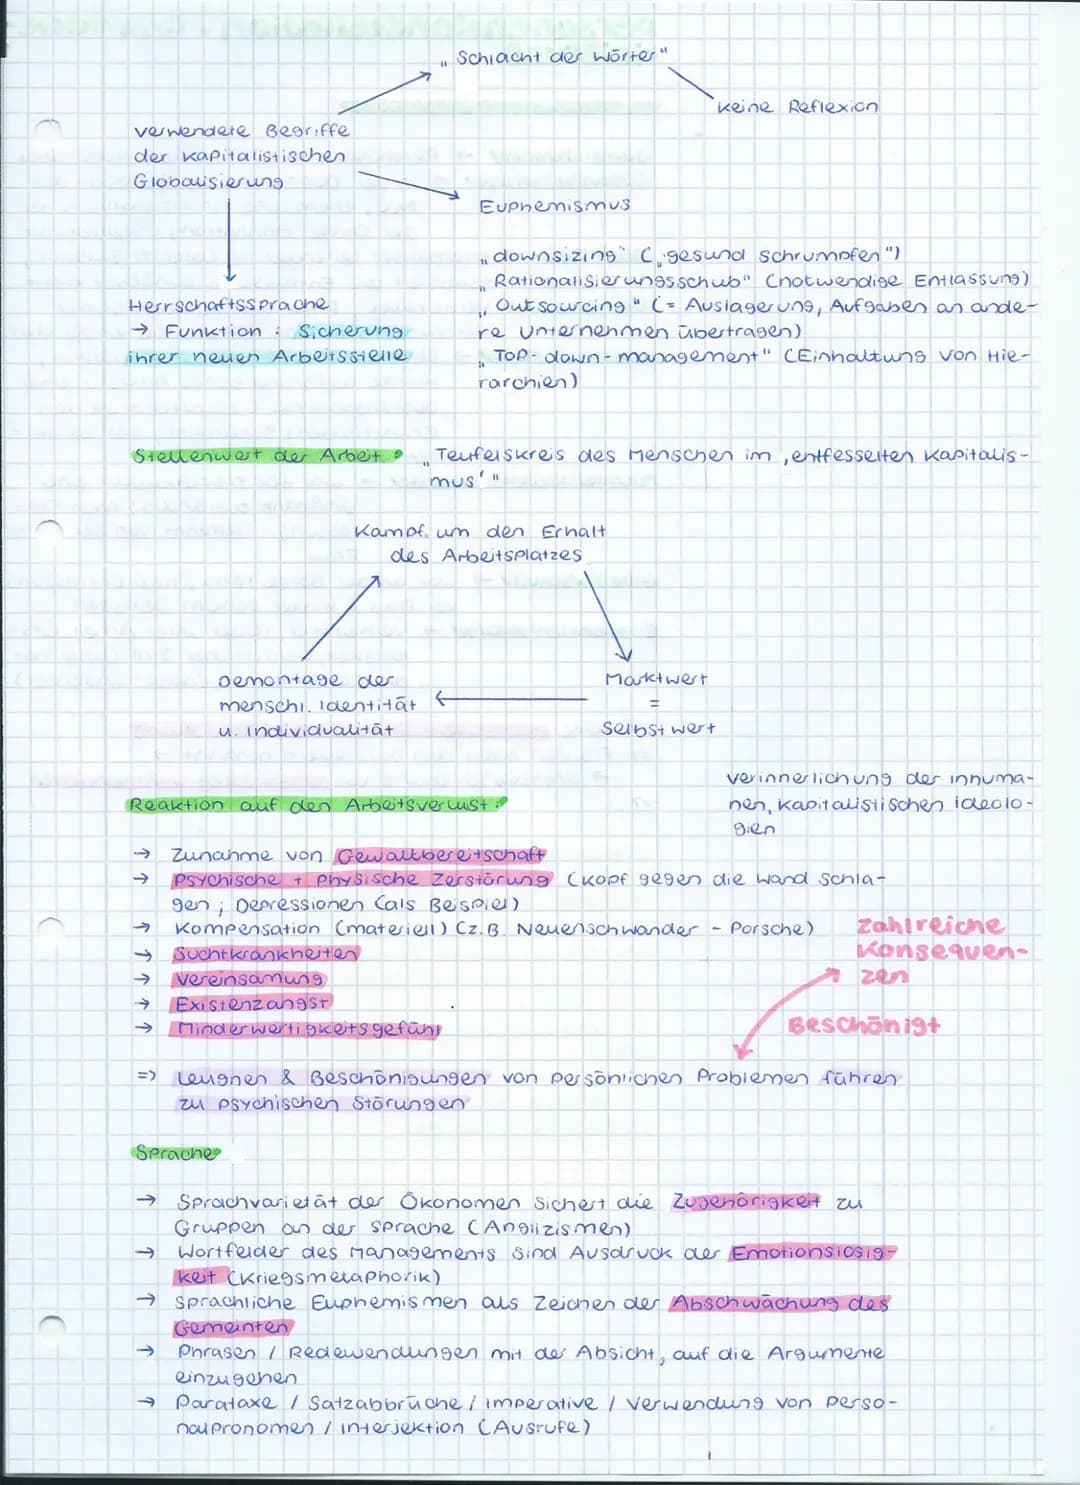 „Schlacht der Wörter"
keine Reflexion
verwendete Begriffe
der kapitalistischen
Globalisierung
Euphemismus
„downsizing" („gesund schrumpfen")
„Rationalisierungsschub" (notwendige Entlassung)
„Outsourcing" (= Auslagerung, Aufgaben an ande-
re Unternehmen übertragen)
„Top-down-management" (Einhaltung von Hie-
rarchien)
Herrschaftssprache
→ Funktion : Sicherung
ihrer neuen Arbeitsstelle
Stellenwert der Arbeit: „Teufelskreis des Menschen im ‚entfesselten Kapitalis-
mus'"
Kampf um den Erhalt
des Arbeitsplatzes
Demontage der
menschl. Identität
u. Individualität
Marktwert
=
Selbstwert
verinnerlichung der inhuma-
nen, kapitalistischen ideolo-
gien
Reaktion auf den Arbeitsverlust:
→ Zunahme von Gewaltbereitschaft
→ Psychische + Physische Zerstörung (Kopf gegen die wand schla-
gen ; Depressionen (als Beispiel)
→ Kompensation (materiell) (z.B. Neuenschwander - Porsche)
→ Suchtkrankheiten
→ Vereinsamung
→ Existenzangst
→ Minderwertigkeitsgefühl
zahlreiche
Konsequen-
zen
Beschönigt
=> Leugnen & Beschönigungen von persönlichen Problemen führen
zu psychischen Störungen
Sprache
→ Sprachvarietät der Ökonomen sichert die Zugehörigkeit zu
Gruppen an der Sprache (Anglizismen)
→ Wortfelder des Managements sind Ausdruck der Emotionslosig-
keit (Kriegsmetaphorik)
→ Sprachliche Euphemismen als Zeichen der Abschwächung des
Gemeinten
→ Phrasen / Redewendungen mit der Absicht, auf die Argumente
einzugehen
→ Parataxe / Satzabbrüche / imperative / Verwendung von Perso-
nalpronomen / interjektion (Ausrufe)